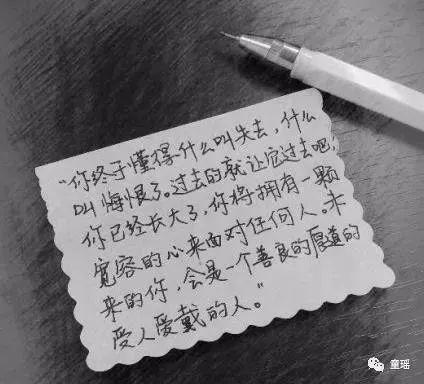 “你终于懂得什么叫失去,什么
叫悔恨了。过去的就让它过去吧,
你已经长大了,你将拥有一颗
宽容的心来面对任何人。未
来的你,会是一个善良的厚道的
受人爱戴的人。”
童瑶